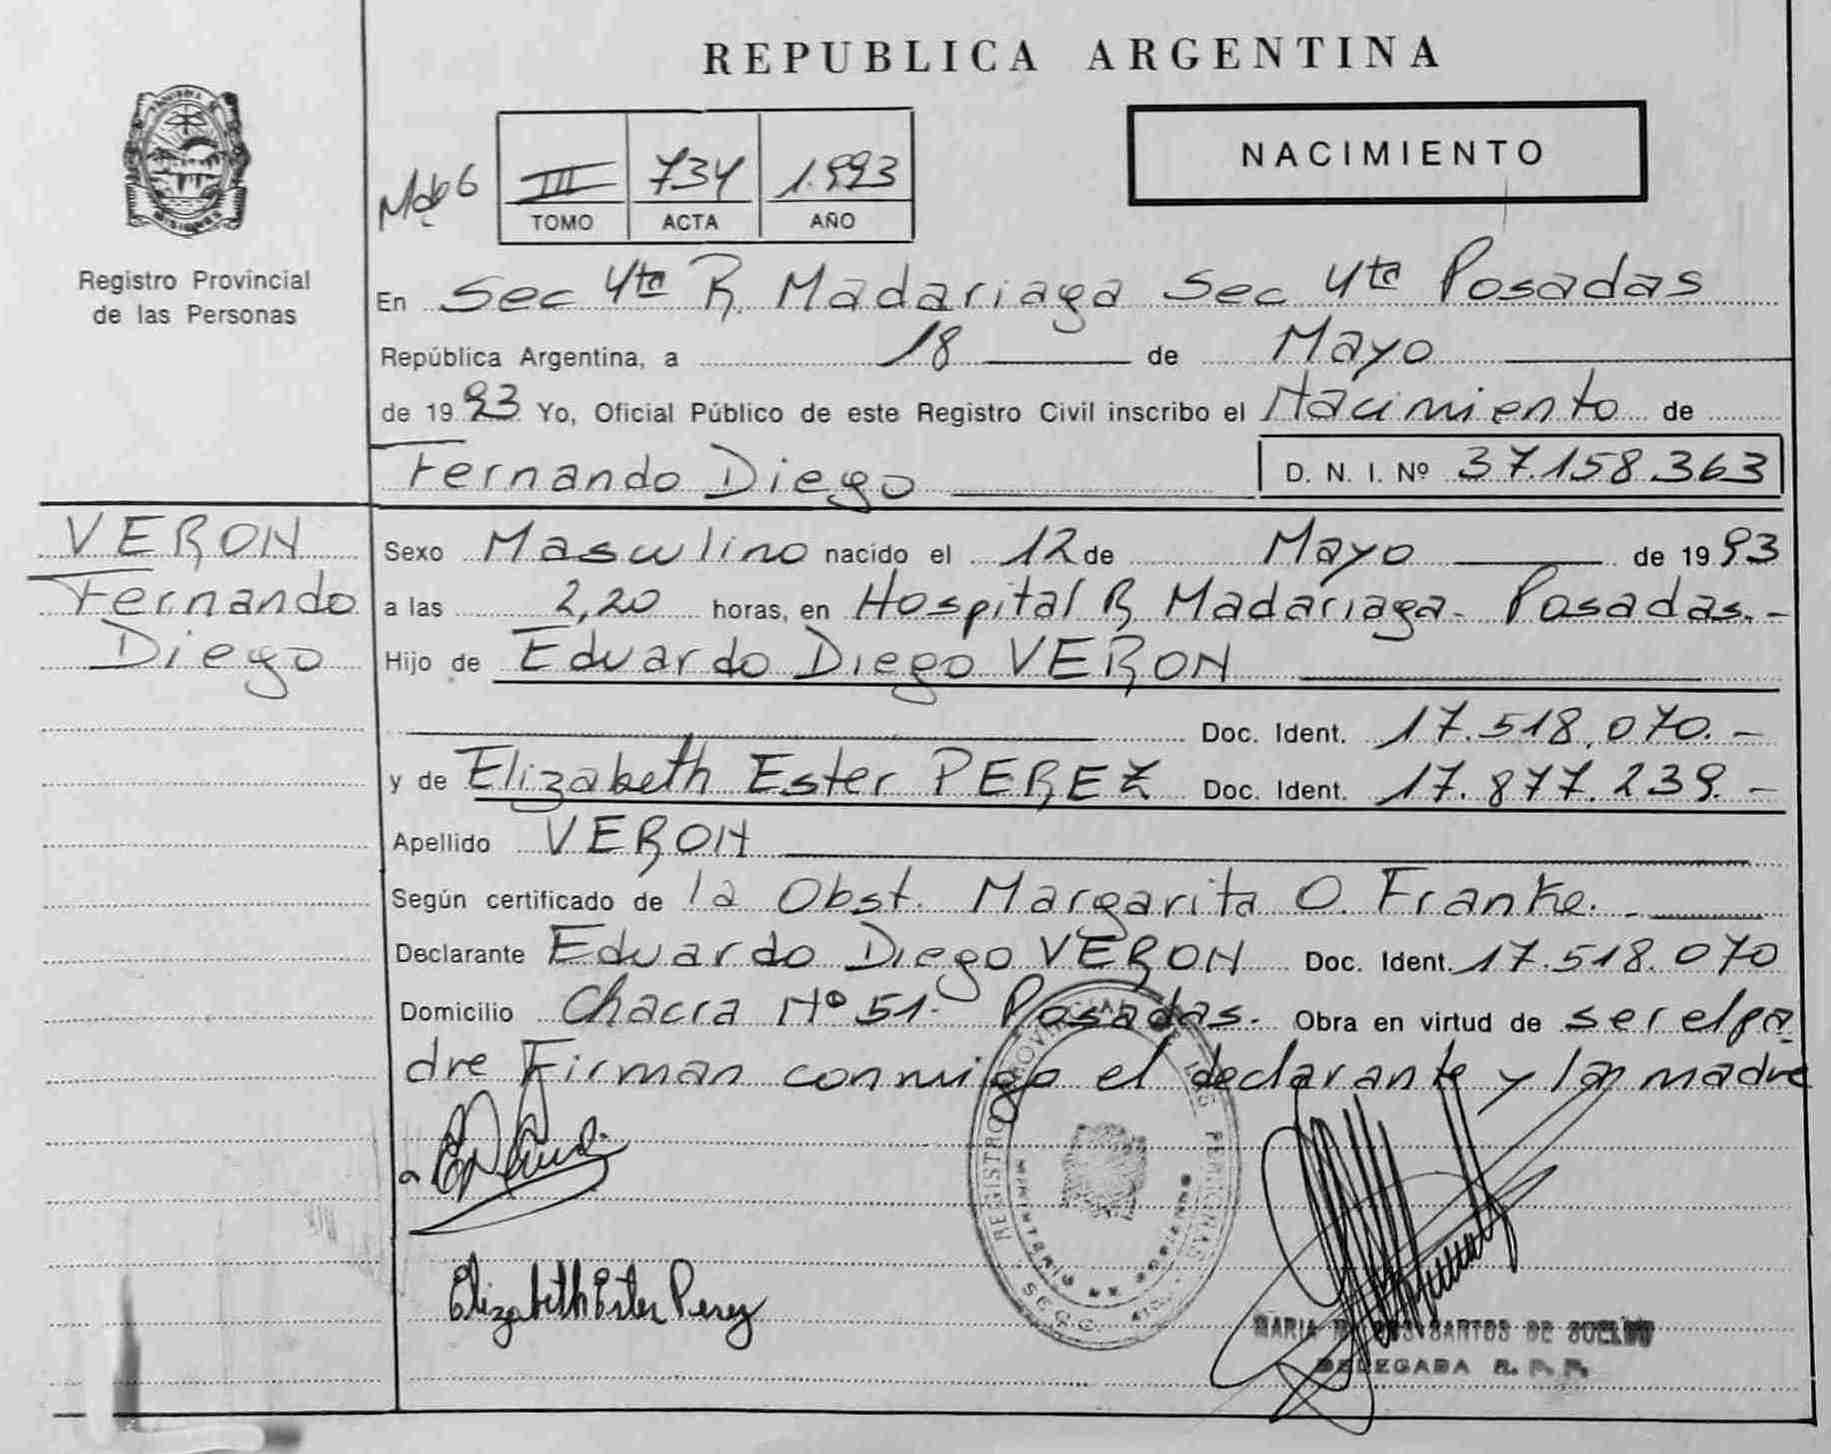 REPUBLICA ARGENTINA
NACIMIENTO
III 734 1.993
TOMO ACTA AÑO
MISIONES
Registro Provincial
de las Personas
En Sec 4ta R. Madariaga Sec 4ta Posadas
República Argentina, a 18 de Mayo
de 1993 Yo, Oficial Público de este Registro Civil inscribo el Nacimiento de
Fernando Diego D. N. I. Nº 37.158.363
VERON
Fernando
Diego
Sexo Masculino nacido el 12 de Mayo de 1993
a las 2,20 horas, en Hospital R. Madariaga - Posadas.-
Hijo de Eduardo Diego VERON
Doc. Ident. 17.518.070.-
y de Elizabeth Ester PEREZ Doc. Ident. 17.877.239.-
Apellido VERON
Según certificado de la Obst. Margarita O. Franke.-
Declarante Eduardo Diego VERON Doc. Ident. 17.518.070
Domicilio Chacra Nº 51- Posadas. Obra en virtud de ser el pa-
dre Firman conmigo el declarante y la madre
Elizabeth Ester Perez
REGISTRO PROVINCIAL DE LAS PERSONAS
MINISTERIO DE GOBIERNO
MARIA SANTOS DE
DELEGADA R. P. P.